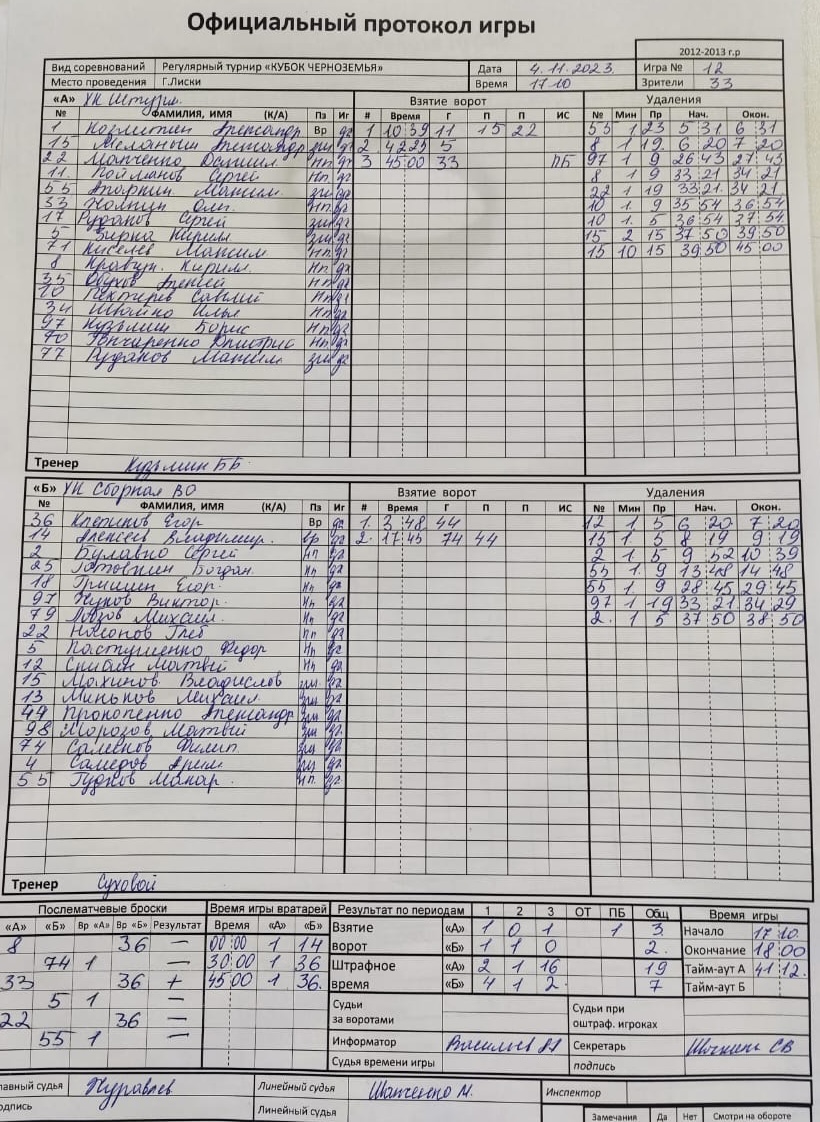 Официальный протокол игры
2012-2013 г.р
Вид соревнований Регулярный турнир «КУБОК ЧЕРНОЗЕМЬЯ» Дата 4.11.2023. Игра № 12
Место проведения Г.Лиски Время 17 10 Зрители 33
«А» ХК Шторм. Взятие ворот Удаления
№ ФАМИЛИЯ, ИМЯ (К/А) Пз Иг # Время Г П П ИС № Мин Пр Нач. Окон.
1 Александр Вр да 1 10 39 11 15 22 55 1 23 5 31 6 31
15 Александр да 2 42 25 5 8 1 19 6 20 7 20
22 Нп да 3 45 00 33 ПБ 97 1 9 26 43 27 43
11 Сергей Нп да 8 1 9 33 21 34 21
55 Максим да 22 1 19 33 21 34 21
33 Олег Нп да 10 1 9 35 54 36 54
17 Руданов Сергей да 10 1 5 36 54 37 54
5 Бирка Кирилл да 15 2 15 37 50 39 50
71 Киселев Максим Нп да 15 10 15 39 50 45 00
8 Кравчук Кирилл Нп да
35 Обухов Алексей Нп да
10 Пехтерев Савелий Нп да
34 Илья Нп да
97 Кузьмин Борис Нп да
70 Гончаренко Дмитрий Нп да
77 Руданов Максим да
Тренер Кузьмин ББ
«Б» ХК Сборная ВО Взятие ворот Удаления
№ ФАМИЛИЯ, ИМЯ (К/А) Пз Иг # Время Г П П ИС № Мин Пр Нач. Окон.
36 Клепиков Егор Вр да 1. 3 48 44 12 1 5 6 20 7 20
14 Алексеев Владимир. Вр да 2. 17 45 74 44 15 1 5 8 19 9 19
2 Булавко Сергей Нп да 2 1 5 9 52 10 39
25 Готовкин Богдан. Нп да 55 1. 9 13 48 14 48
18 Гришин Егор. Нп да 55 1. 9 28 45 29 45
97 Жуков Виктор. Нп да 97 1 19 33 21 34 29
79 Лозов Михаил. Нп да 2. 1 5 37 50 38 50
22 Носонов Глеб Нп да
5 Пастушенко Федор Нп да
12 Матвей Нп да
15 Махинов Владислав да
13 Миньков Михаил да
44 Прокопенко Александр да
98 Морозов Матвей да
74 Филип. да
4 Самедов да
55 Гудков Макар. Нп. да
Тренер Суховой
Послематчевые броски Время игры вратарей Результат по периодам 1 2 3 ОТ ПБ Общ Время игры
«А» «Б» Вр «А» Вр «Б» Результат Время «А» «Б» Взятие ворот «А» 1 0 1 1 3 Начало 17 10
8 36 — 00 00 1 14 «Б» 1 1 0 2. Окончание 18 00
74 1 — 30 00 1 36 Штрафное время «А» 2 1 16 19 Тайм-аут А 41 12.
33 36 + 45 00 1 36. «Б» 4 1 2 7 Тайм-аут Б
5 1 — Судьи за воротами Судьи при оштраф. игроках
22 36 — Информатор Васильев Секретарь СВ
55 1 — Судья времени игры подпись
лавный судья Журавлев Линейный судья Шапченко М. Инспектор
одпись Линейный судья Замечания Да Нет Смотри на обороте